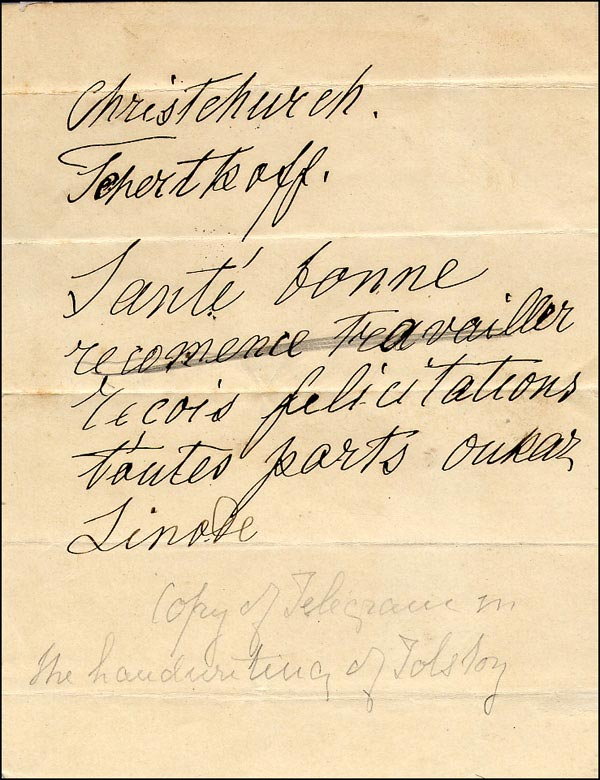 Christchurch.
Tchertkoff.
Santé bonne
recomence travailler
recois felicitations
toutes parts oukaz
Sinode
Copy of Telegram in
the handwriting of Tolstoy